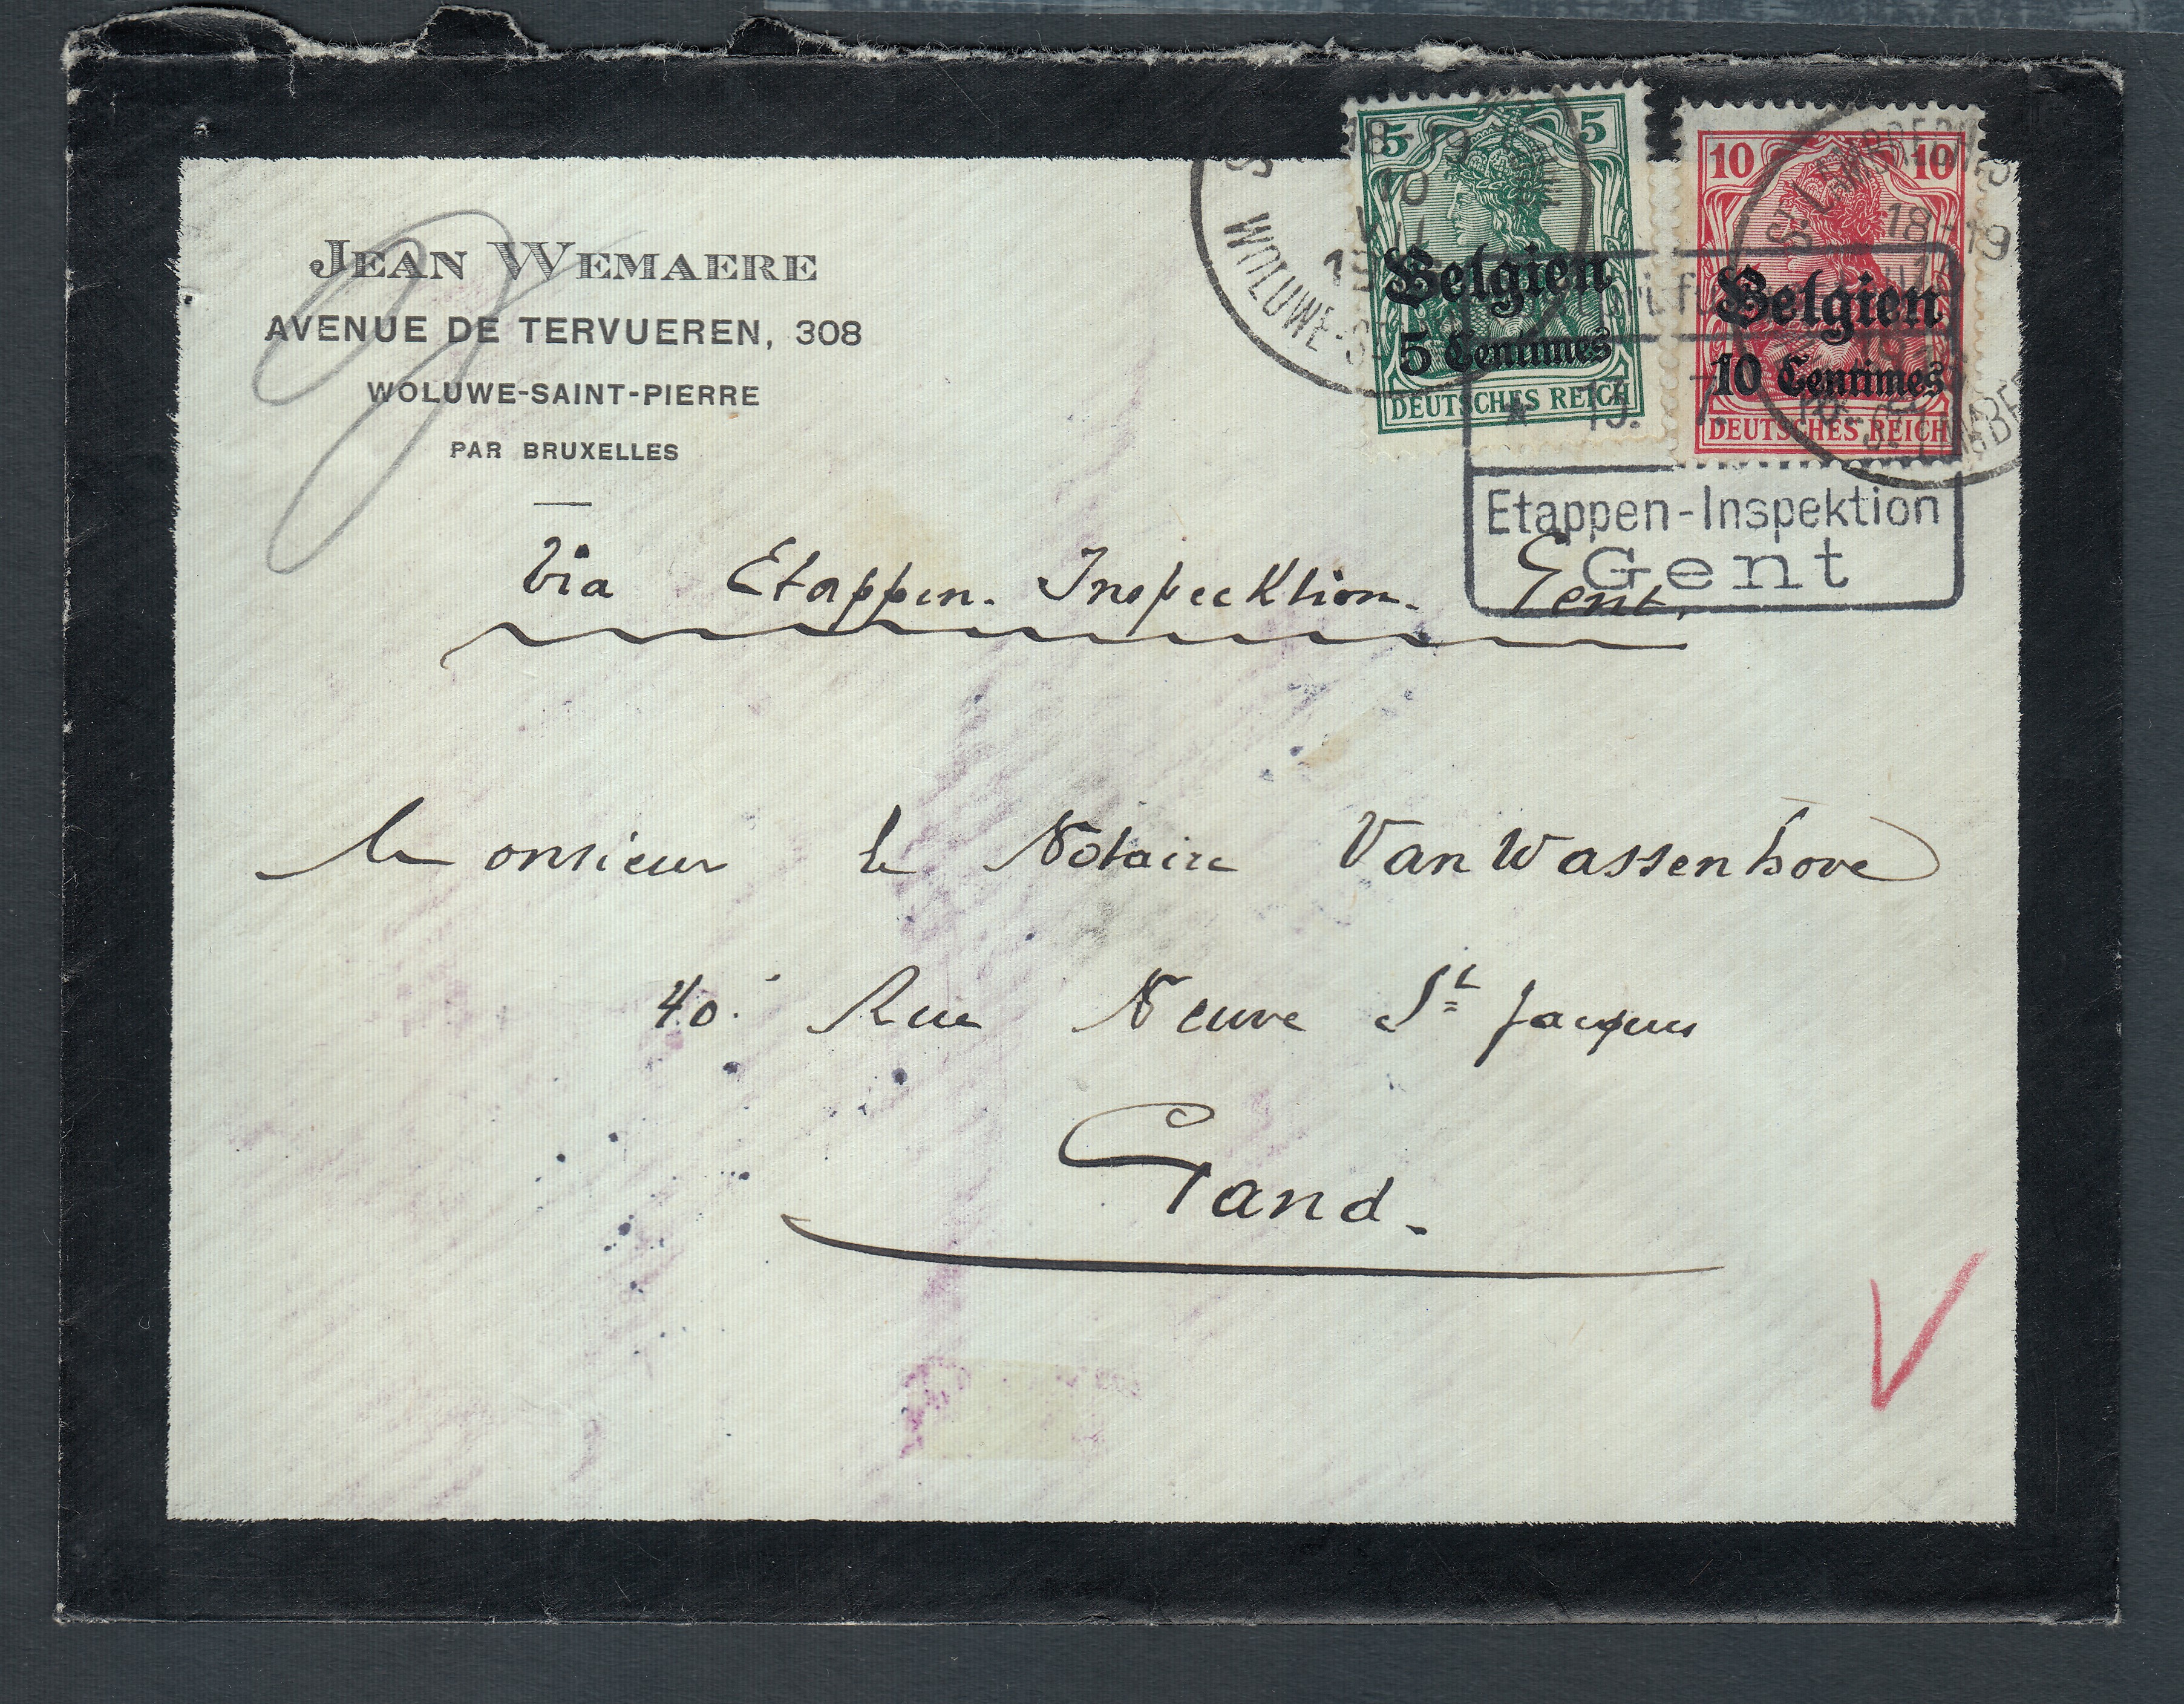 JEAN WEMAERE
AVENUE DE TERVUEREN, 308
WOLUWE-SAINT-PIERRE
PAR BRUXELLES
5 5
Belgien
5 Centimes
DEUTSCHES REICH
10 10
Belgien
10 Centimes
DEUTSCHES REICH
18-19
10
WOLUWE-ST
ST. LAMBRECHTS
18-19
15.
Etappen-Inspektion
Gent
Via Etappen. Inspecktion. Gent.
Monsieur le Notaire Van Wassenhove
40. Rue Neuve St Jacques
Gand.